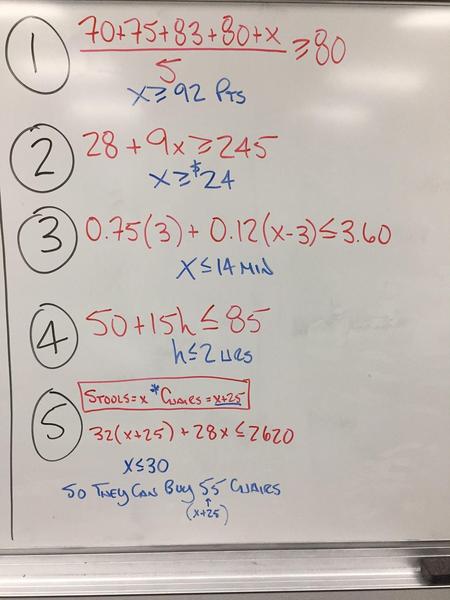 1
70+75+83+80+x
5
≥80
x≥92 PTS
2
28+9x≥245
x≥$24
3
0.75(3)+0.12(x-3)≤3.60
x≤14 MIN
4
50+15h≤85
h≤2 HRS
5
STOOLS=x * CHAIRS=x+25
32(x+25)+28x≤2620
x≤30
SO THEY CAN BUY 55 CHAIRS
↑
(x+25)